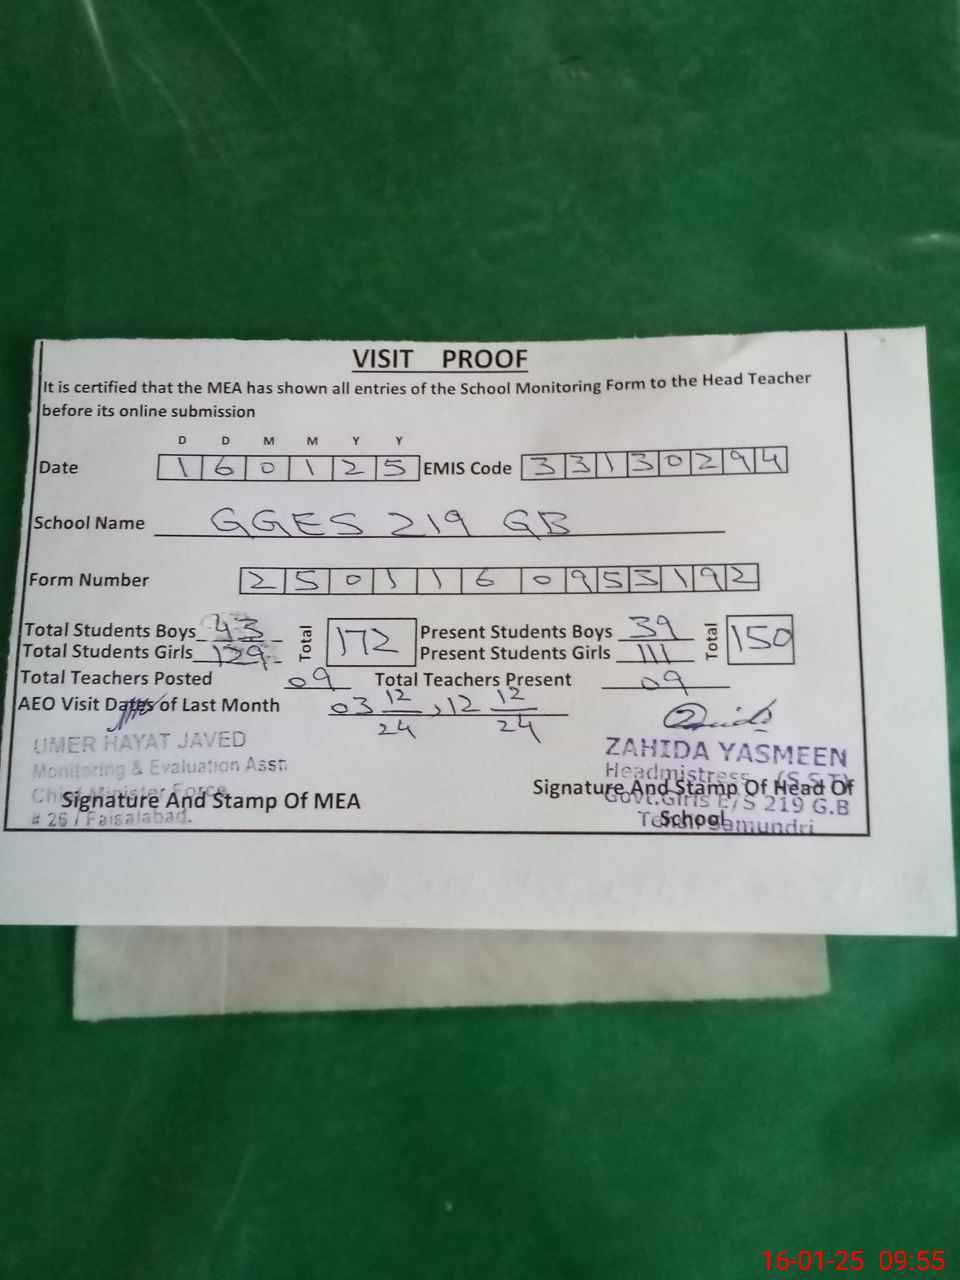 VISIT PROOF
It is certified that the MEA has shown all entries of the School Monitoring Form to the Head Teacher
before its online submission
D D M M Y Y
Date 1 6 0 1 2 5 EMIS Code 3 3 1 3 0 2 9 4
School Name GGES 219 GB
Form Number 2 5 0 1 1 6 0 9 5 3 1 9 2
Total Students Boys 43 Total 172 Present Students Boys 39 Total 150
Total Students Girls 129 Present Students Girls 111
Total Teachers Posted 09 Total Teachers Present 09
AEO Visit Dates of Last Month 03 12/24, 12 12/24
UMER HAYAT JAVED
Monitoring & Evaluation Asst.
Chief Minister Force
# 26 / Faisalabad.
Signature And Stamp Of MEA
ZAHIDA YASMEEN
Headmistress (S.S.T)
Govt.Girls E/S 219 G.B
Tehsil Samundri
Signature And Stamp Of Head Of
School
16-01-25 09:55